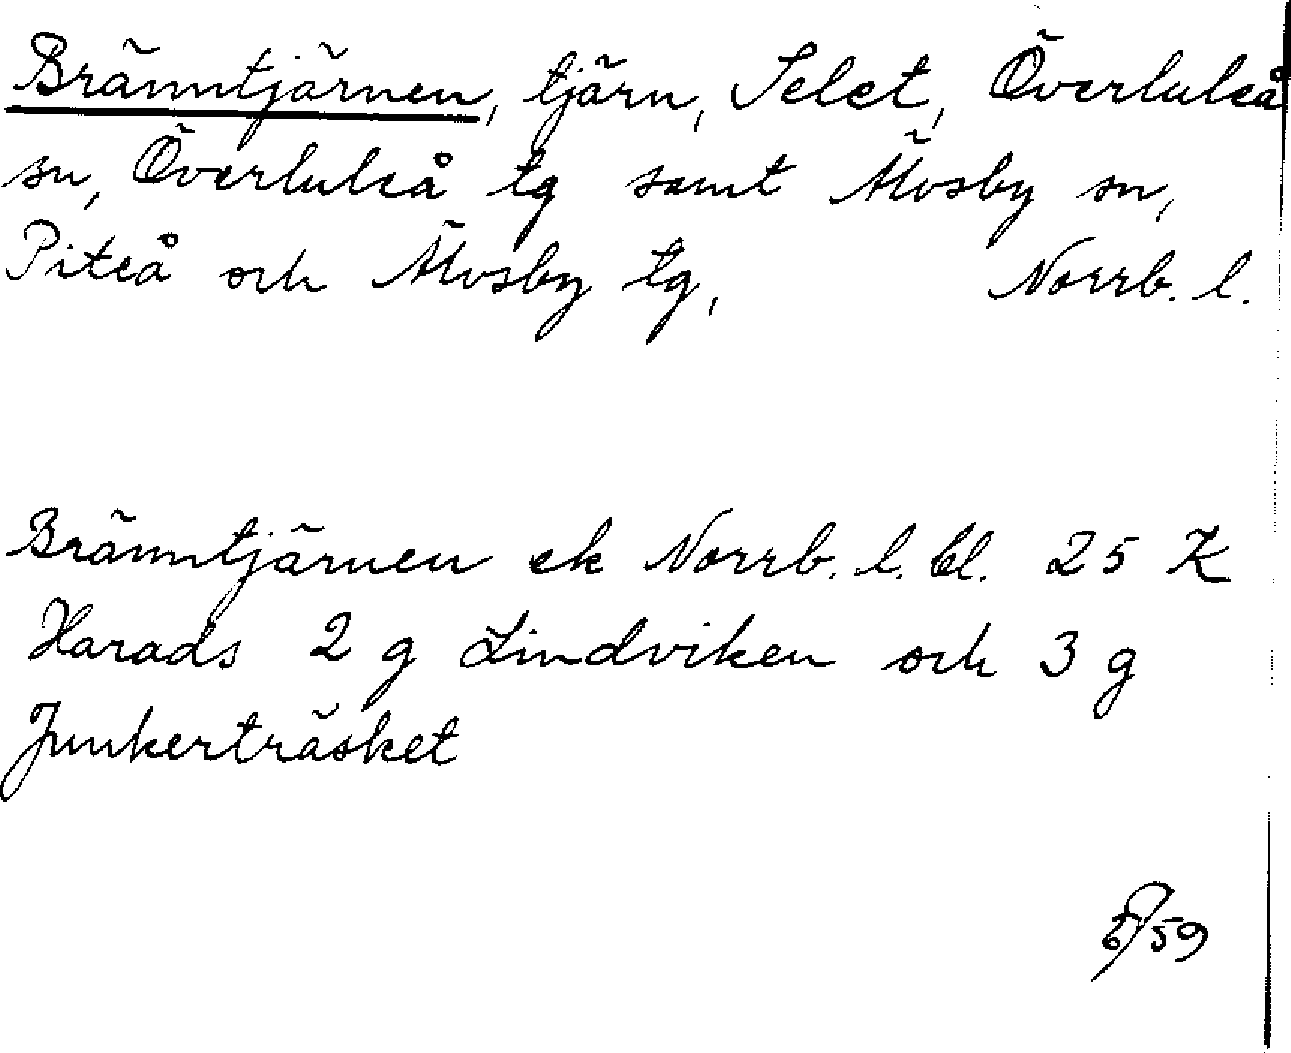 Bränntjärnen, tjärn, Selet, Överluleå
sn, Överluleå tg samt Älvsby sn,
Piteå och Älvsby tg, Norrb. l.
Bränntjärnen ek Norrb. l. bl. 25 K
Harads 2 g Lindviken och 3 g
Junkerträsket